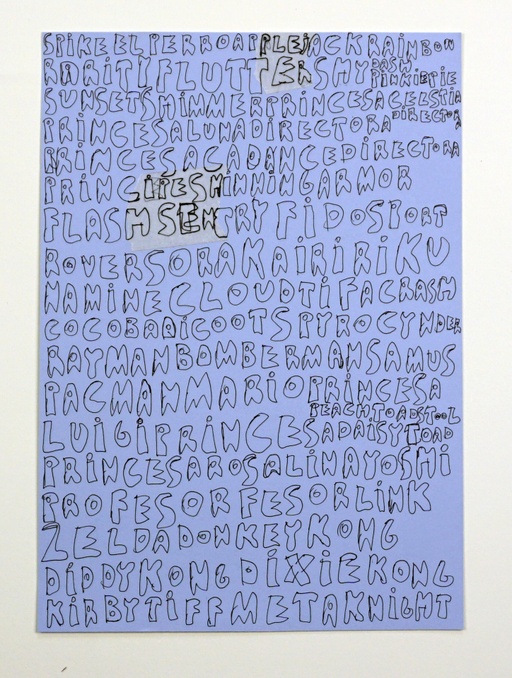 SPIKEELPERROAPPLEJACKRAINBOW
DASH
RARITYFLUTTERSHY PINKIEPIE
SUNSETSHIMMERPRINCESACELESTIA
DIRECTORA
PRINCESALUNADIRECTORA
PRINCESACADANCEDIRECTORA
PRINCIPESHINNINGARMOR
FLASHSENTRYFIDOSPORT
ROVERSORAKAIRIRIKU
NAMINECLOUDTIFACRASH
COCOBADICOOTSPYROCYNDER
RAYMANBOMBERMANSAMUS
PACMANMARIOPRINCESA
PEACHTOADSTOOL
LUIGIPRINCESADAISYTOAD
PRINCESAROSALINAYOSHI
PROFESORFESORLINK
ZELDADONKEYKONG
DIDDYKONGDIXIEKONG
KIRBYTIFFMETAKNIGHT